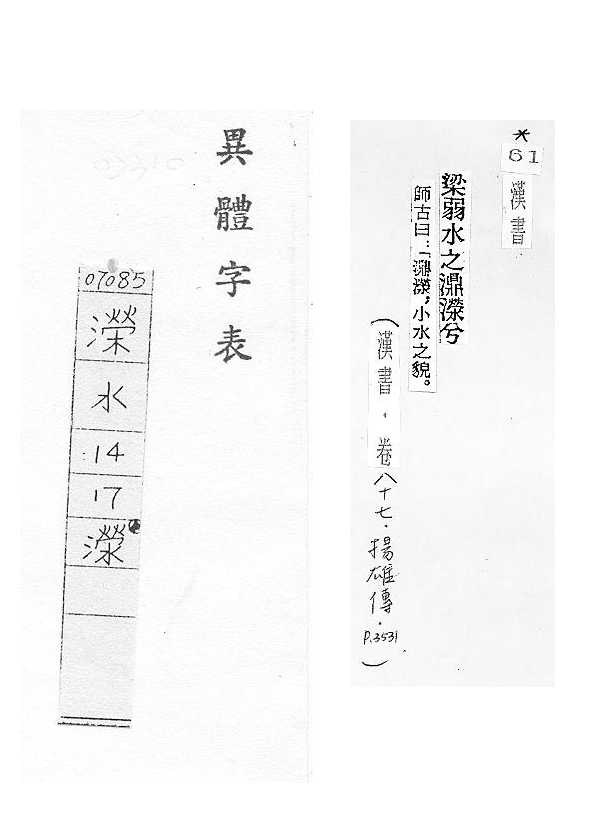 *
61
漢書
梁弱水之濎濴兮
師古曰：「濎濴，小水之貌。
（漢書．卷八十七．揚雄傳．P.3531）
異體字表
07085
濚
水
14
17
濴